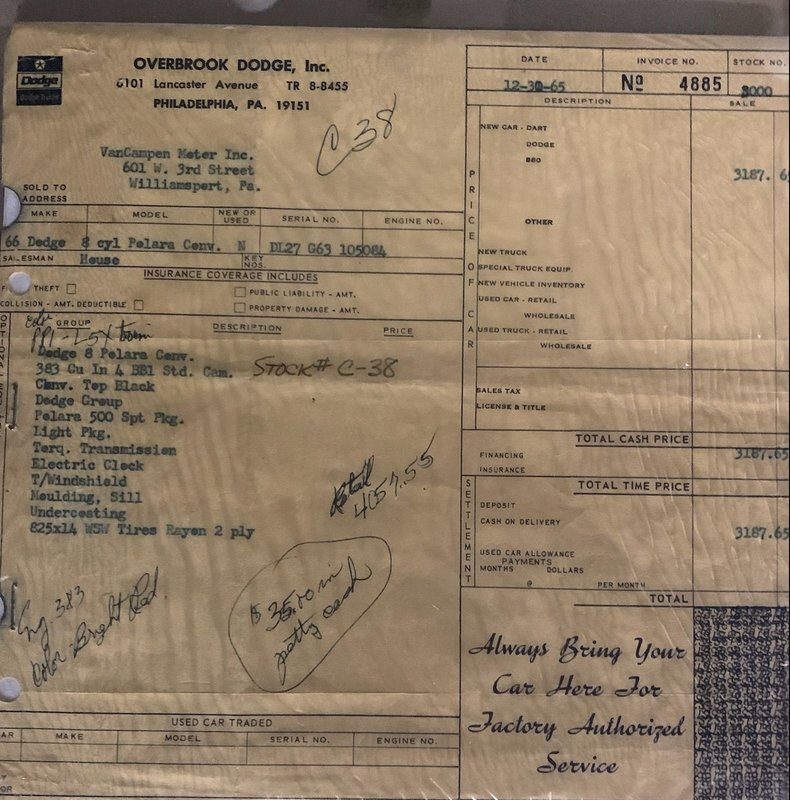 Dodge
Dodge Trucks
OVERBROOK DODGE, Inc.
6101 Lancaster Avenue TR 8-8455
PHILADELPHIA, PA. 19151
C38
DATE INVOICE NO. STOCK NO.
12-30-65 No 4885 3000
DESCRIPTION SALE
VanCampen Moter Inc.
601 W. 3rd Street
Williamspert, Pa.
SOLD TO
ADDRESS
MAKE MODEL NEW OR USED SERIAL NO. ENGINE NO.
66 Dodge 8 cyl Polara Conv. N DL27 G63 105084
SALESMAN House KEY NOS.
INSURANCE COVERAGE INCLUDES
THEFT PUBLIC LIABILITY - AMT.
COLLISION - AMT. DEDUCTIBLE PROPERTY DAMAGE - AMT.
GROUP DESCRIPTION PRICE
PP1-L5X
Dodge 8 Polara Conv.
383 Cu In 4 BBl Std. Cam. STOCK# C-38
Conv. Top Black
Dodge Group
Polara 500 Spt Pkg.
Light Pkg.
Torq. Transmission
Electric Clock
T/Windshield
Moulding, Sill
Undercoating
825x14 WSW Tires Rayon 2 ply
Retail
4057.55
Eng 383
Color Bright Red
$35.00 in
petty cash
USED CAR TRADED
MAKE MODEL SERIAL NO. ENGINE NO.
PRICE OF CAR
NEW CAR - DART
DODGE
880
3187.6
OTHER
NEW TRUCK
SPECIAL TRUCK EQUIP.
NEW VEHICLE INVENTORY
USED CAR - RETAIL
WHOLESALE
USED TRUCK - RETAIL
WHOLESALE
SALES TAX
LICENSE & TITLE
TOTAL CASH PRICE 3187.65
FINANCING
INSURANCE
TOTAL TIME PRICE
SETTLEMENT
DEPOSIT
CASH ON DELIVERY 3187.65
USED CAR ALLOWANCE
PAYMENTS
MONTHS DOLLARS
@ PER MONTH
TOTAL
Always Bring Your
Car Here For
Factory Authorized
Service